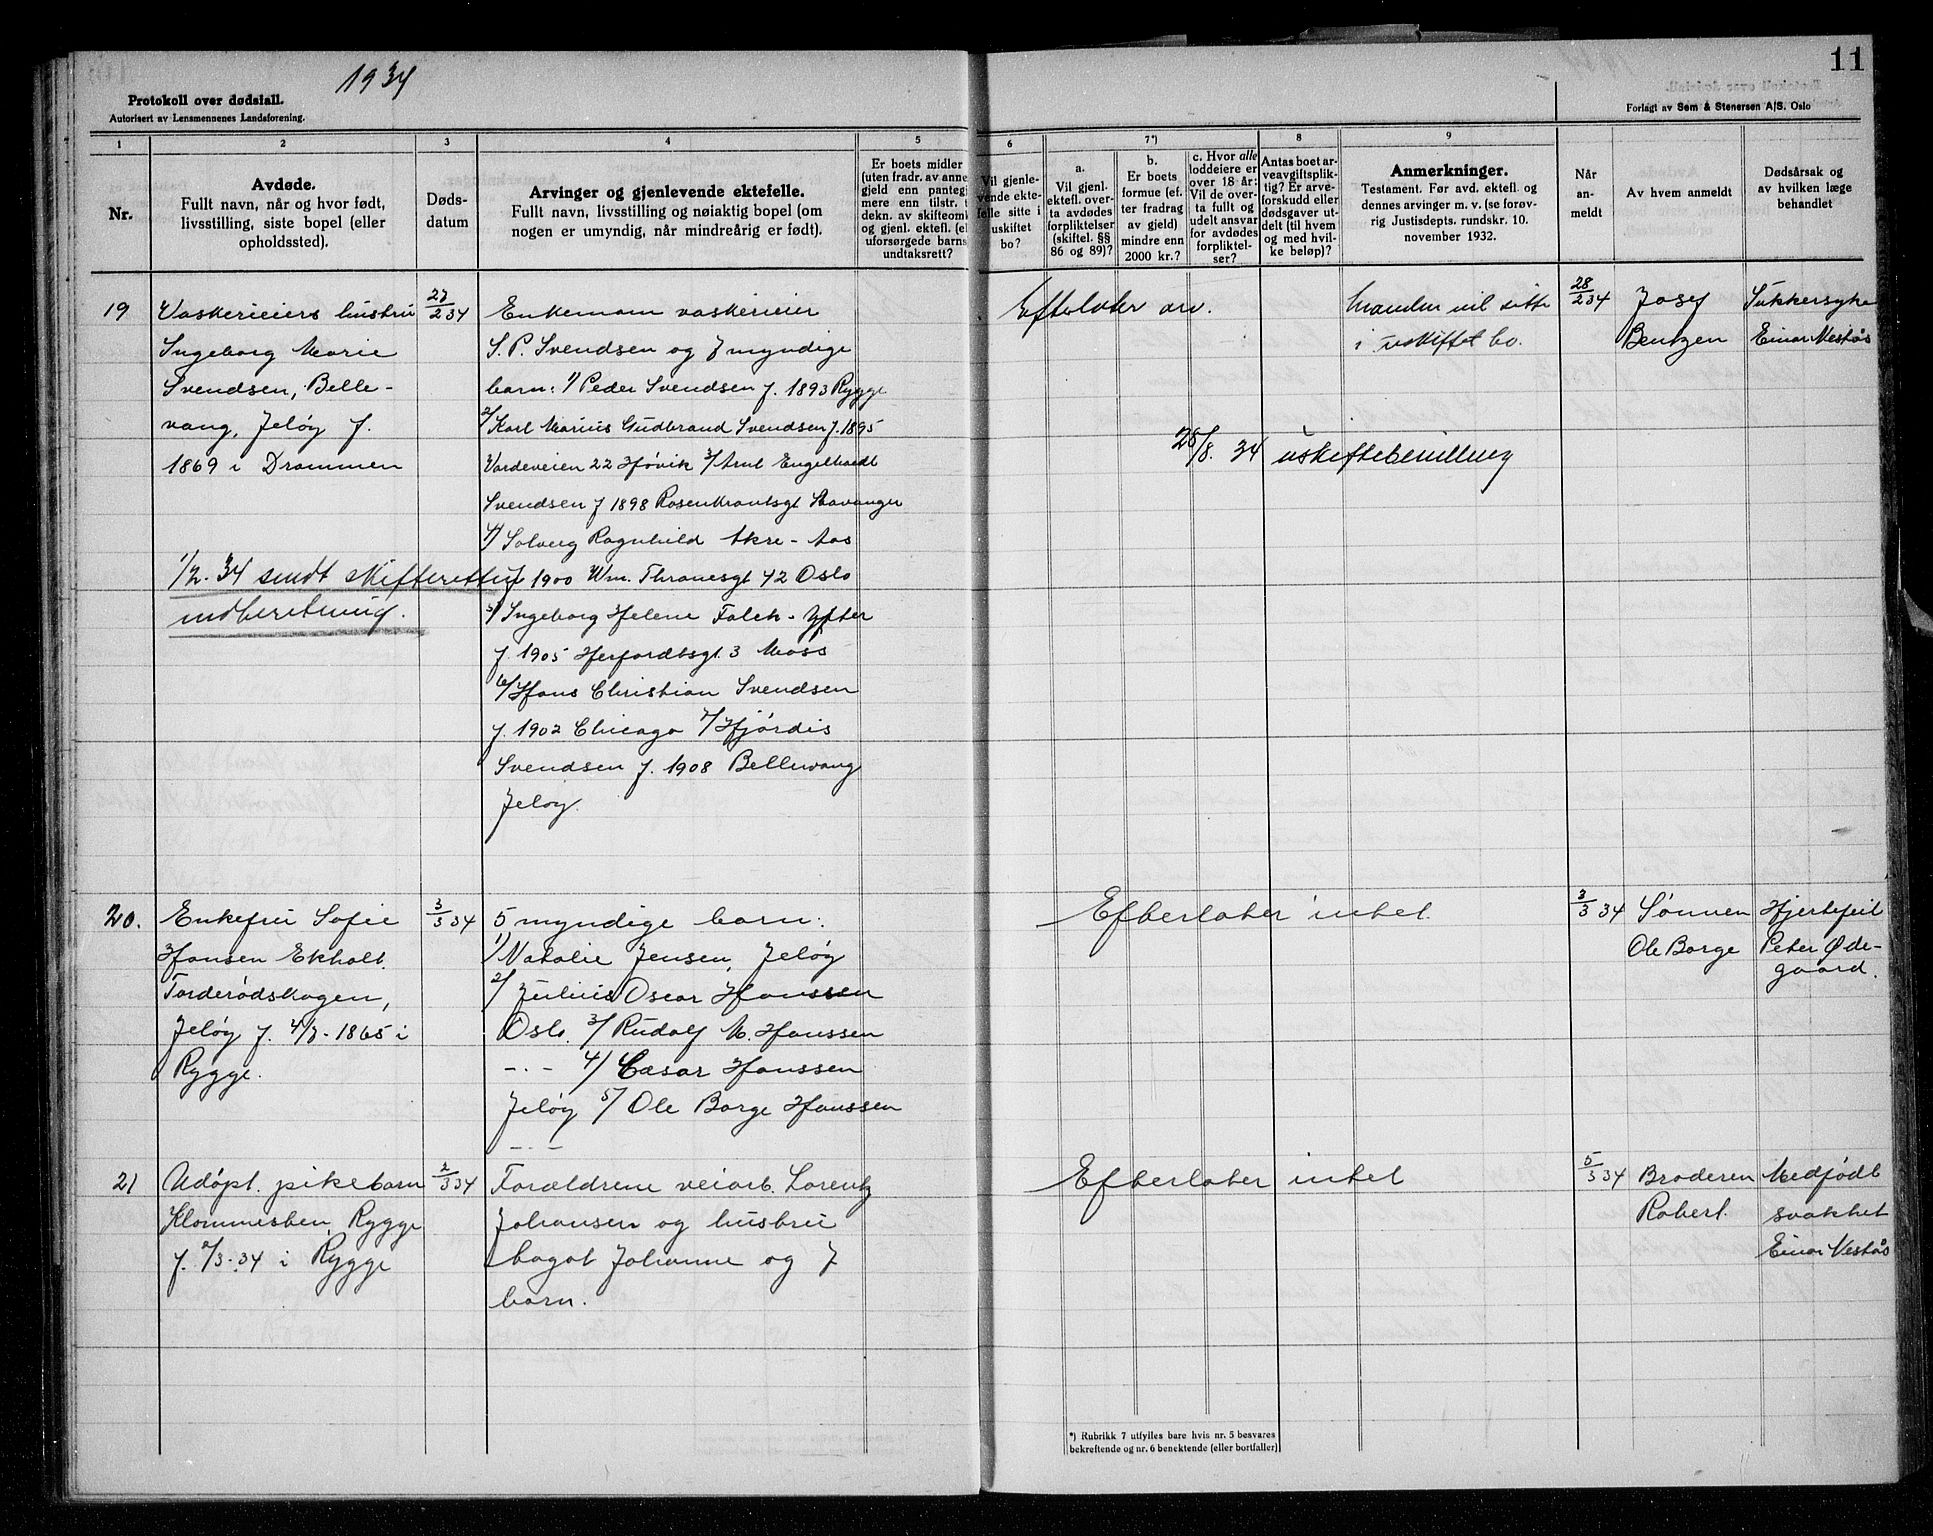 1934
11
Protokoll over dødsfall.
Autorisert av Lensmennenes Landsforening.
Forlagt av Sem & Stenersen A/S. Oslo
1 2 3 4 5 6 7*) 8 9
Nr.
Avdøde.
Fullt navn, når og hvor født,
livsstilling, siste bopel (eller
opholdssted).
Døds-
datum
Arvinger og gjenlevende ektefelle.
Fullt navn, livsstilling og nøiaktig bopel (om
nogen er umyndig, når mindreårig er født).
Er boets midler
(uten fradr. av anne
gjeld enn panteg
mere enn tilstr. t
dekn. av skifteomk
og gjenl. ektefl. (el
uforsørgede barns
undtaksrett?
Vil gjenle-
vende ekte-
felle sitte i
uskiftet
bo?
a.
Vil gjenl.
ektefl. over-
ta avdødes
forpliktelser
(skiftel. §§
86 og 89)?
b.
Er boets
formue (ef.
ter fradrag
av gjeld)
mindre enn
2000 kr.?
c. Hvor alle
loddeiere er
over 18 år:
Vil de over-
ta fullt og
udelt ansvar
for avdødes
forpliktel-
ser?
Antas boet ar-
veavgiftsplik-
tig? Er arve-
forskudd eller
dødsgaver ut-
delt (til hvem
og med hvil-
ke beløp)?
Anmerkninger.
Testament. Før avd. ektefl. og
dennes arvinger m. v. (se forøv-
rig Justisdepts. rundskr. 10.
november 1932.
Når
an-
meldt
Av hvem anmeldt
Dødsårsak og
av hvilken læge
behandlet
19
Vaskerieiers hustru
Ingeborg Marie
Svendsen, Belle-
vang, Jeløy f.
1869 i Drammen
27/2 34
1/2. 34 sendt skifteretten
indberetning.
Enkemann vaskerieier
S. P. Svendsen og 7 myndige
barn: 1/ Peder Svendsen f. 1893 Rygge
2/ Karl Marius Gudbrand Svendsen f. 1895
Vardeveien 22 Høvik 3/ Arnt Engelhardt
Svendsen f 1898 Rosenkrantsgt Stavanger
4/ Solveig Ragnhild Akre-Aas
f 1900 Wm. Thranesgt 42 Oslo
5/ Ingeborg Helene Falch-Ytter
f. 1905 Herfordtsgt. 3 Moss
6/ Hans Christian Svendsen
f. 1902 Chicago 7/ Hjördis
Svendsen f. 1908 Bellevang
Jeløy.
Efterlater arv.
Manden vil sitte
i uskiftet bo.
28/8. 34 uskiftebevilling
28/2 34
Josef
Bentzen
Sukkersyke
Einar Vestås
20.
Enkefru Sofie
Hansen Ekholt.
Torderødskogen,
Jeløy f. 4/7-1865 i
Rygge.
3/3 34
5 myndige barn:
1/ Natalie Jensen, Jeløy
2/ Julius Oscar Hanssen
Oslo. 3/ Rudolf M. Hanssen
-.- 4/ Cæsar Hanssen
Jeløy 5/ Ole Borge Hanssen
-.-
Efterlater intet.
3/3 34
Sønnen
Ole Borge
Hjertefeil
Peter Øde-
gaard.
21
Adøpt. pikebarn
Klommesten, Rygge
f. 2/3-34 i Rygge
2/3 34
Foreldrene veiarb. Lorentz
Johansen og hustru
Johanne og 7
barn.
Efterlater intet
5/3 34
Broderen
Robert.
Medfødt
svakhet
Einar Vestås
*) Rubrikk 7 utfylles bare hvis nr. 5 besvares
bekreftende og nr. 6 benektende (eller bortfaller)